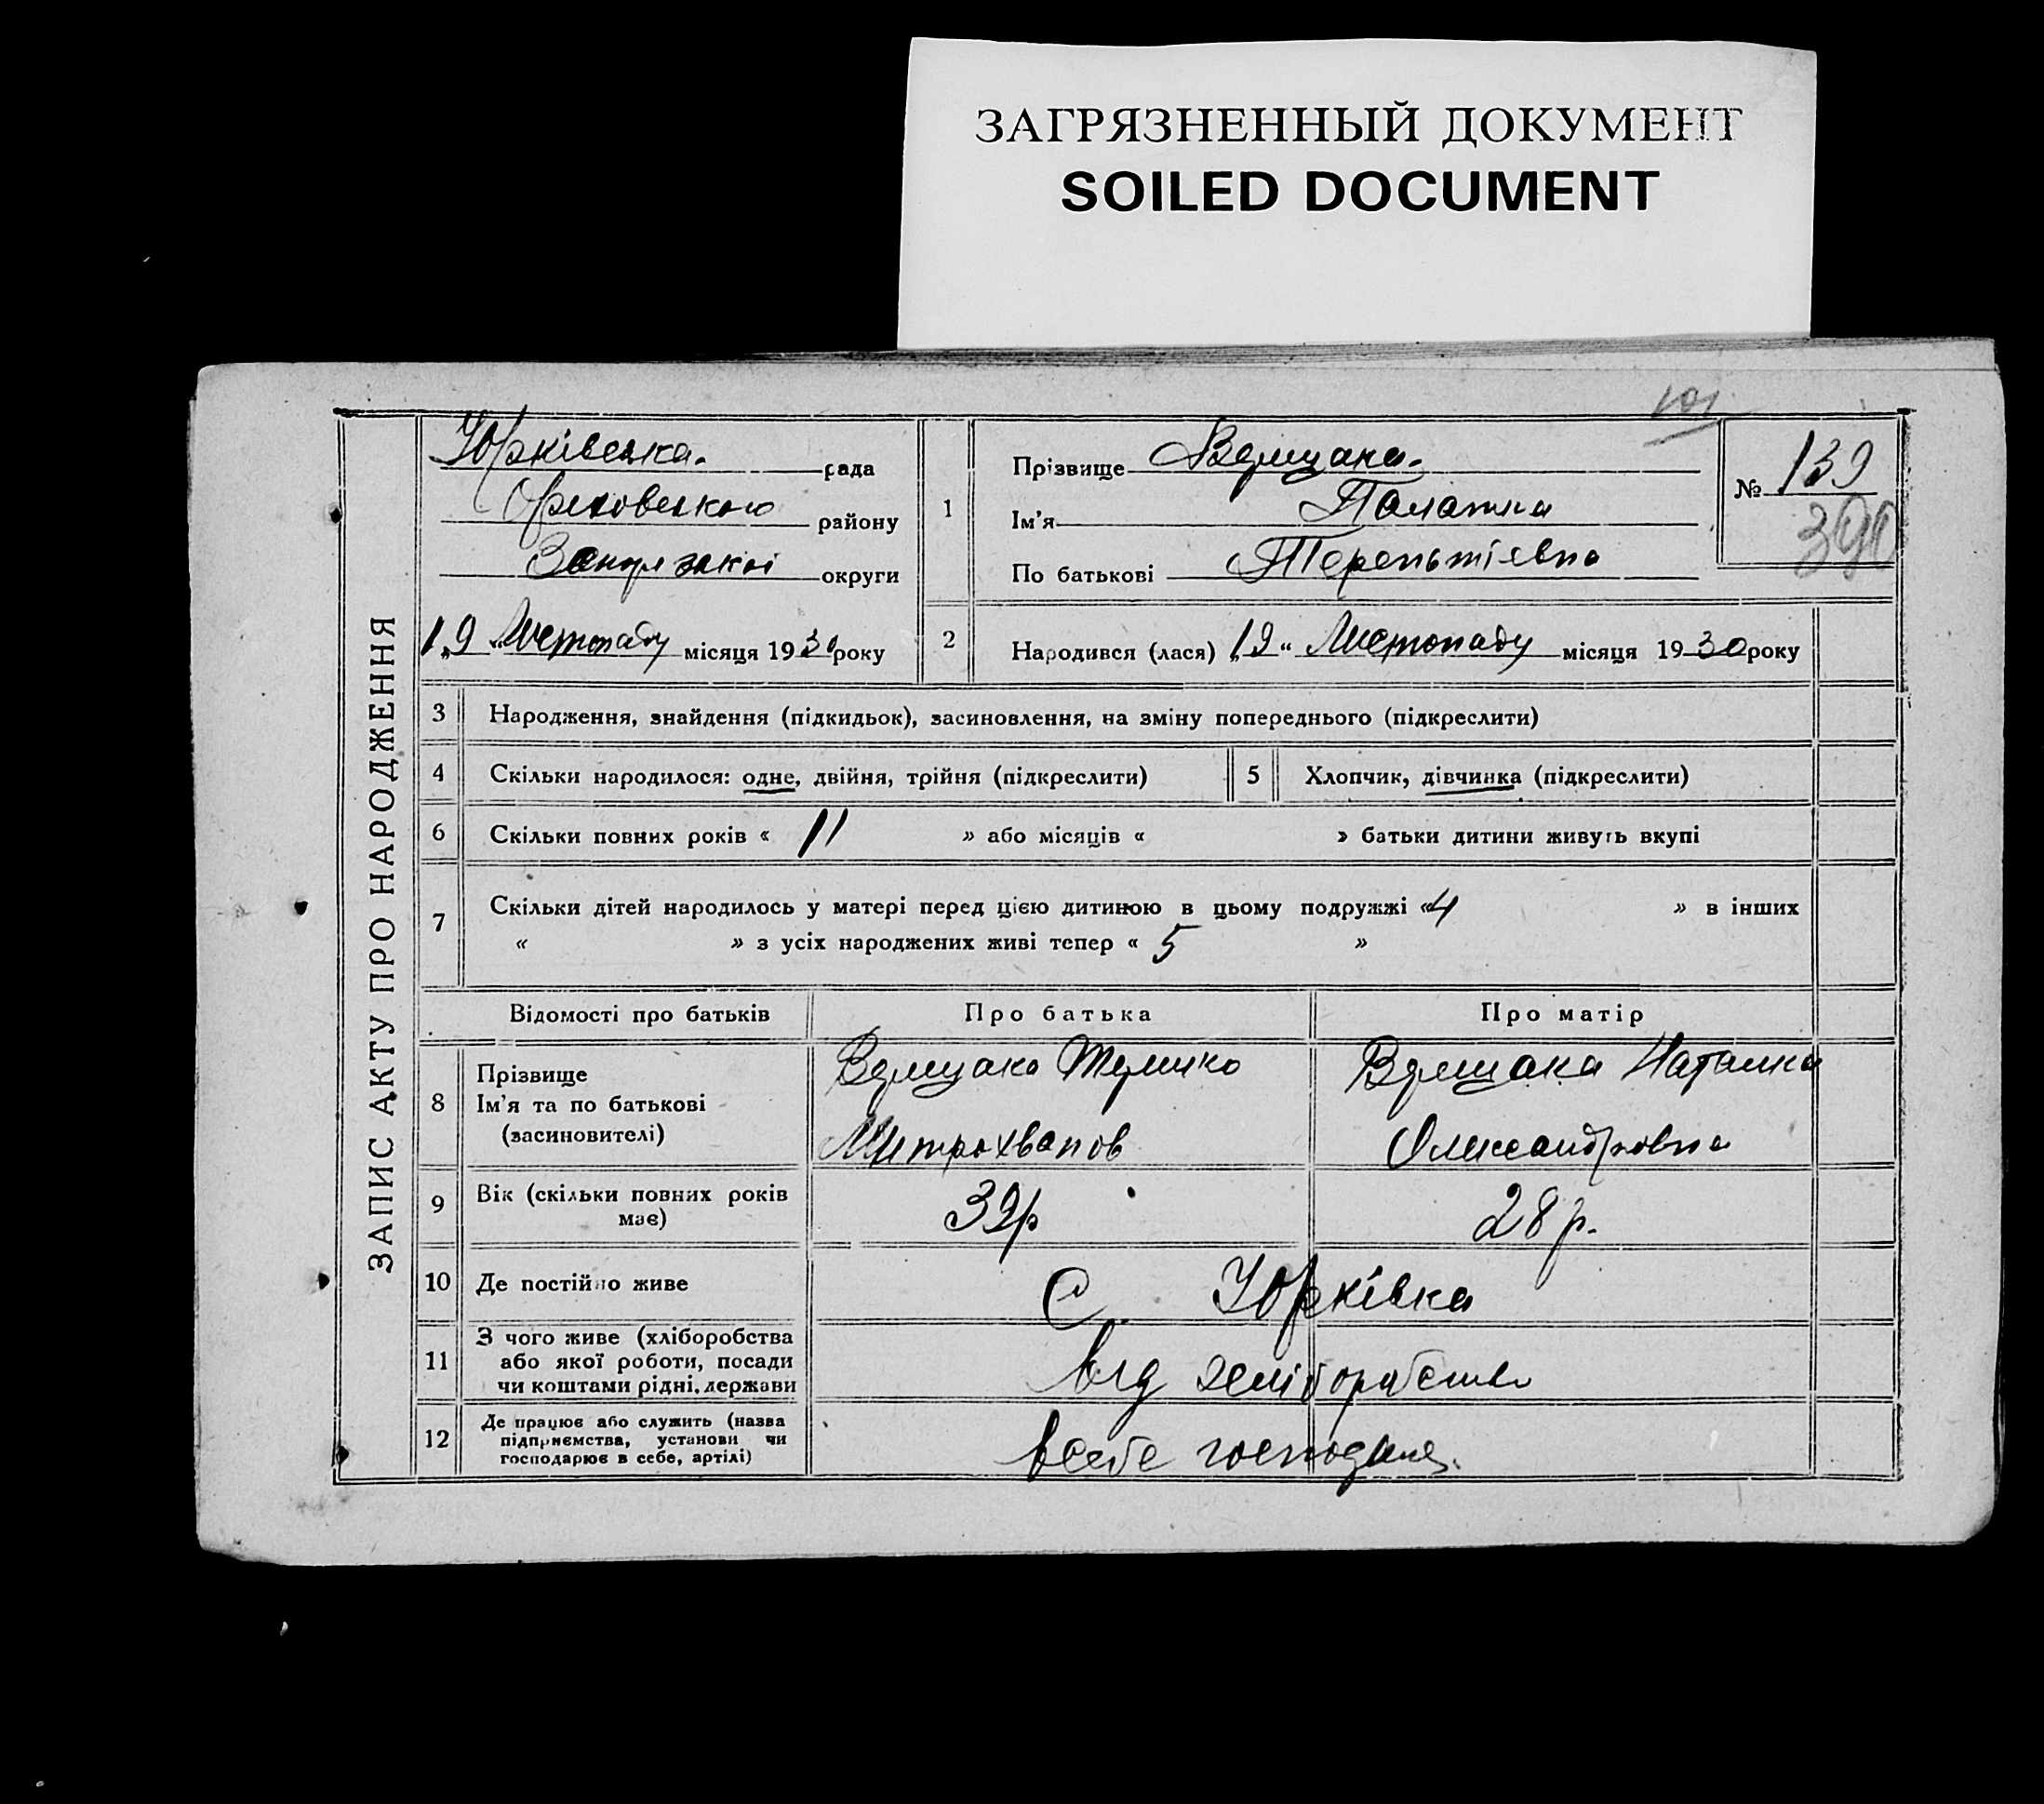 ЗАГРЯЗНЕННЫЙ ДОКУМЕНТ
SOILED DOCUMENT
101
ЗАПИС АКТУ ПРО НАРОДЖЕННЯ
Юрківська. рада
Оріховського району
округи
„19“ Листопаду місяця 1930 року
1
Прізвище
Ім'я Палажка
По батькові Терентієвна
№ 139
390
2 Народився (лася) „19“ Листопаду місяця 1930 року
3 Народження, знайдення (підкидьок), засиновлення, на зміну попереднього (підкреслити)
4 Скільки народилося: одне, двійня, трійня (підкреслити) 5 Хлопчик, дівчинка (підкреслити)
6 Скільки повних років « 11 » або місяців « » батьки дитини живуть вкупі
7 Скільки дітей народилось у матері перед цією дитиною в цьому подружжі «4 » в інших
« » з усіх народжених живі тепер « 5 »
Відомості про батьків Про батька Про матір
8 Прізвище
Ім'я та по батькові
(засиновителі)
Наталка
Митрохванов Олександровна
9 Вік (скільки повних років має) 39р 28 р.
10 Де постійно живе С. Юрківка
11 З чого живе (хліборобства
або якої роботи, посади
чи коштами рідні, держави
від
12 Де працює або служить (назва
підприємства, установи чи
господарює в себе, артілі)
в себе